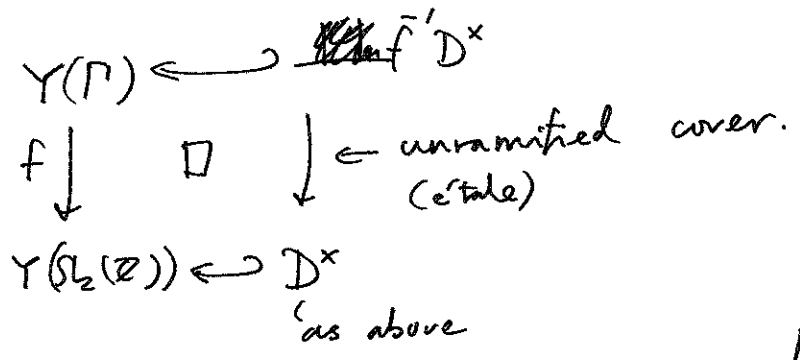 Y(Γ) ↩ f⁻¹D^×
f ↓ □ ↓ ← unramified cover.
(étale)
Y(SL₂(ℤ)) ↩ D^×
as above